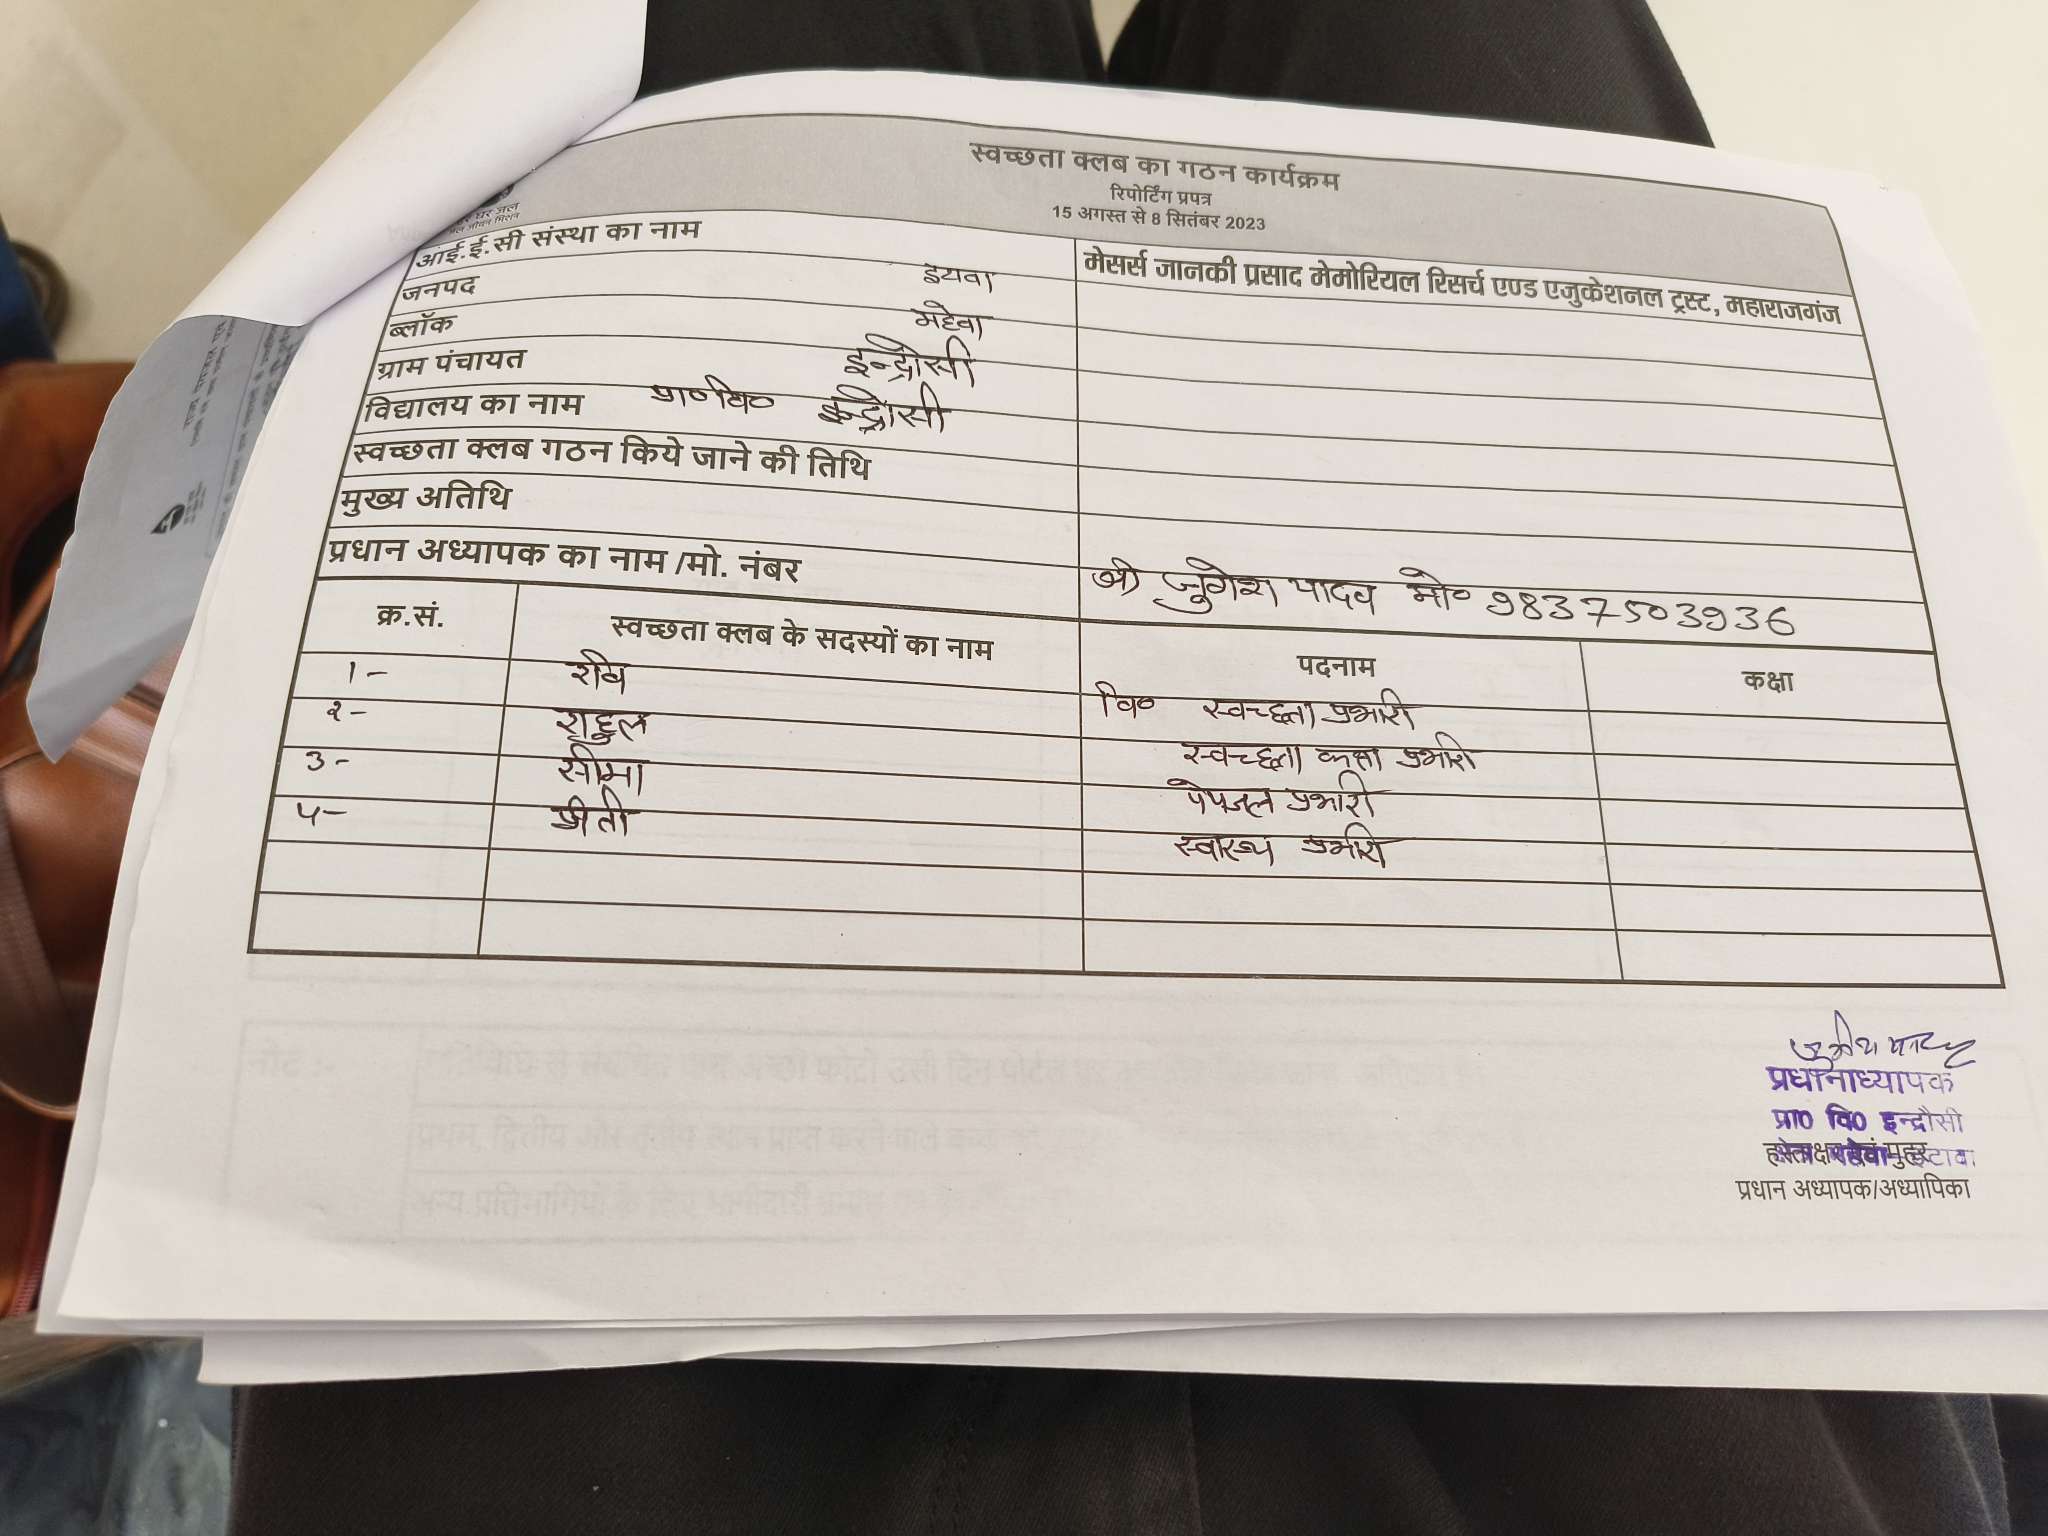 स्वच्छता क्लब का गठन कार्यक्रम
रिपोर्टिंग प्रपत्र
15 अगस्त से 8 सितंबर 2023
घर जल
जल जीवन मिशन
आई.ई.सी संस्था का नाम मेसर्स जानकी प्रसाद मेमोरियल रिसर्च एण्ड एजुकेशनल ट्रस्ट, महाराजगंज
जनपद इटावा
ब्लॉक महेवा
ग्राम पंचायत इन्द्रौसी
विद्यालय का नाम प्रा०वि० इन्द्रौसी
स्वच्छता क्लब गठन किये जाने की तिथि
मुख्य अतिथि
प्रधान अध्यापक का नाम /मो. नंबर श्री जुगेश यादव मो० 9837503936
क्र.सं. स्वच्छता क्लब के सदस्यों का नाम पदनाम कक्षा
1- रवि वि० स्वच्छता प्रभारी
२- राहुल स्वच्छता कक्षा प्रभारी
3- सीमा पेयजल प्रभारी
५- प्रीती स्वास्थ्य प्रभारी
प्रधानाध्यापक
प्रा0 वि0 इन्द्रौसी
हस्ताक्षर एवं मुहर
प्रधान अध्यापक/अध्यापिका